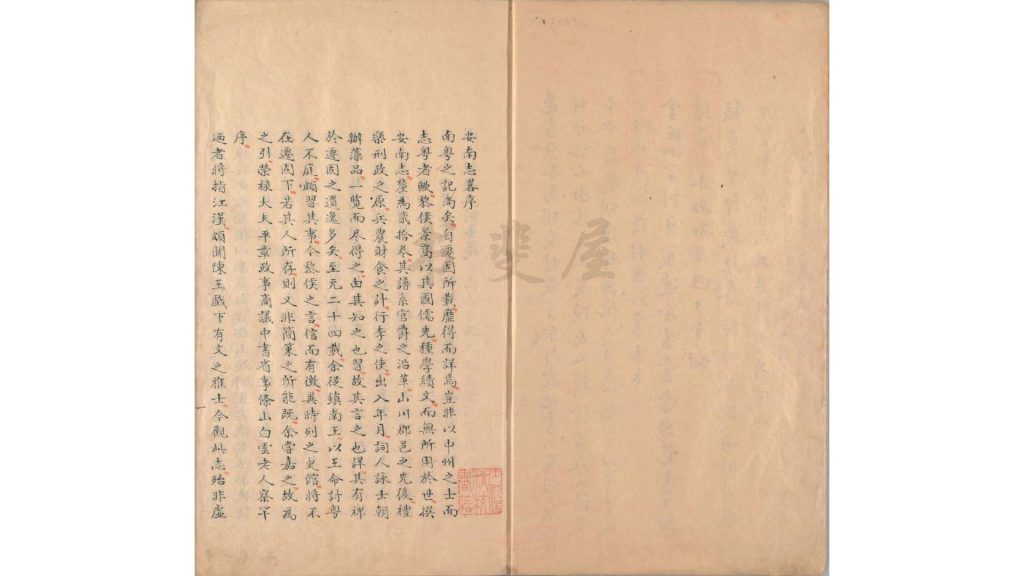 安南志畧序
南粤之記尚矣自遷固所載靡得而詳焉豈非以中州之士而
志粤者歟黎侯景高以其國儒先種學績文而無所用於世撰
安南志釐為貳拾卷其譜系官爵之沿革山川郡邑之先後禮
樂刑政之原兵農財食之計行李之使出入年月詞人詠士朝
辦藻品一覽而尽得之由其知之也習故其言之也詳其有裨
於遷固之遺逸多矣至元二十四載余從鎮南王以王命討粤
人不庭頗習其事今黎侯之言信而有徵異時列之史館將不
在遷固下若其人所存則又非簡策之所能既余嘗嘉之故為
之引榮禄大夫平章政事商議中書省事條山白雲老人察罕
序
廼者將指江漢頗聞陳王戲下有文之雅士今觀此志殆非虛
斐屋